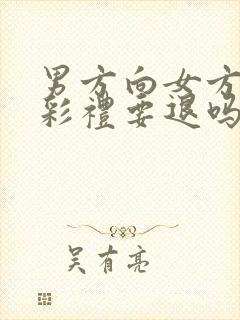 男方向女方
彩禮要退吗
吴有亮